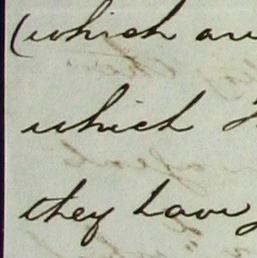 (which are
which
they have